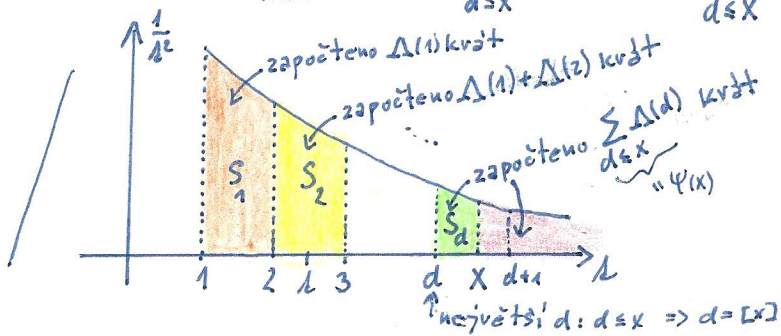 d≤x
d≤x
1/t²
započteno Λ(1) krát
započteno Λ(1)+Λ(2) krát
...
započteno ∑ Λ(d) krát
d≤x
" Ψ(x)
S₁
S₂
S_d
1 2 t 3 d x d+1 t
největší d: d≤x => d=[x]